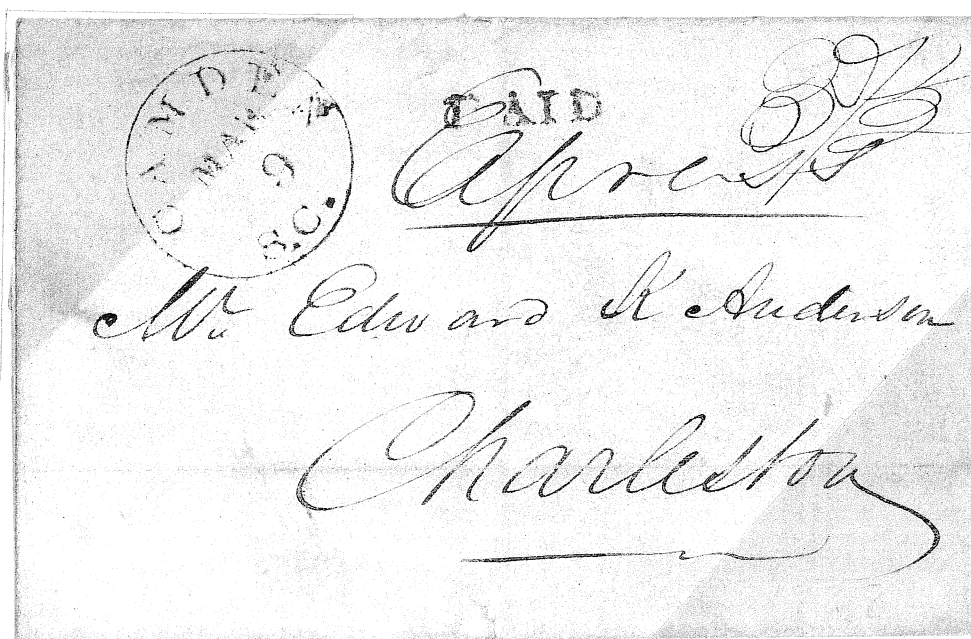 CAMDEN
MAR
9
S.C.
PAID
Express
Mr Edward K Anderson
Charleston